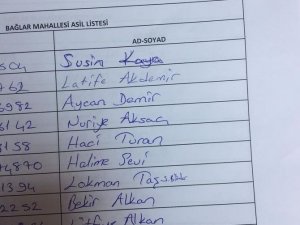 BAĞLAR MAHALLESİ ASİL LİSTESİ
AD-SOYAD
504 Susin Kaya
762 Latife Akdemir
6982 Aycan Demir
3142 Nuriye Aksaç
3158 Haci Turan
74870 Halime Sevi
1394 Lokman
12252 Bekir Alkan
Alkan